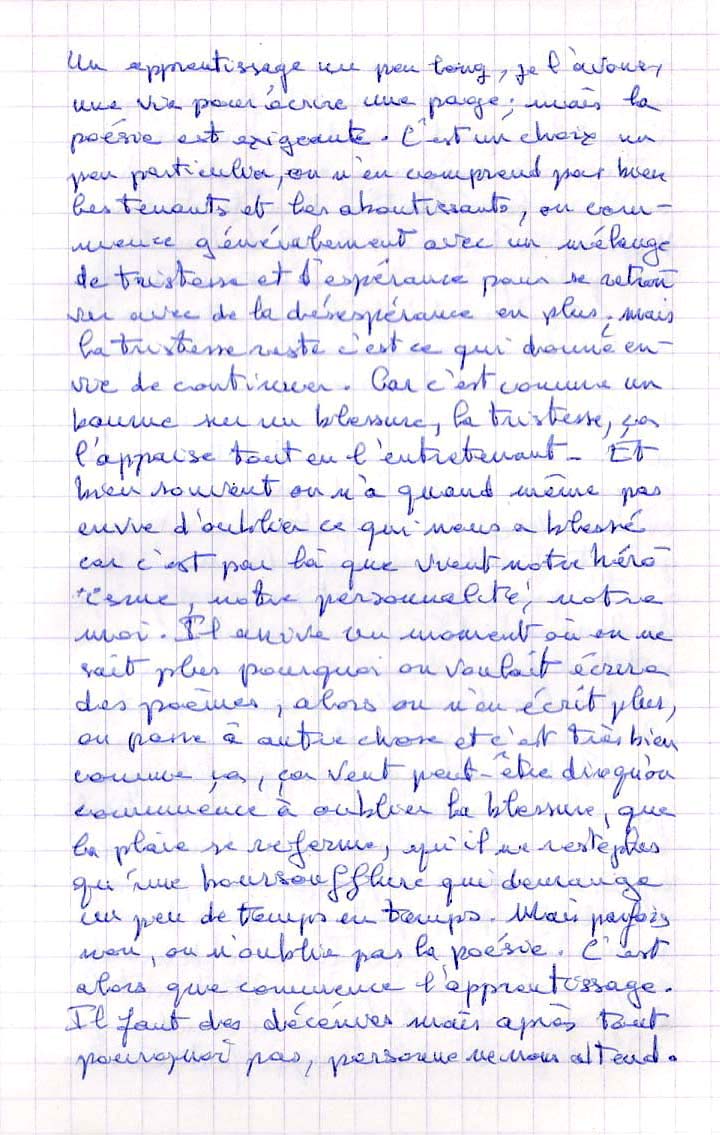 Un apprentissage un peu long, je l'avoue,
une vie pour écrire une page; mais la
poésie est exigeante. C'est un choix un
peu particulier, on n'en comprend pas bien
les tenants et les aboutissants, on com-
mence généralement avec un mélange
de tristesse et d'espérance pour se retrou
ver avec de la désespérance en plus; mais
la tristesse reste c'est ce qui donne en-
vie de continuer. Car c'est comme un
baume sur un blessure, la tristesse, ça
l'appaise tout en l'entretenant - Et
bien souvent on n'a quand même pas
envie d'oublier ce qui nous a blessé
car c'est par là que vient notre héro
ïsme, notre personnalité, notre
moi. Il arrive un moment où on ne
sait plus pourquoi on voulait écrire
des poèmes, alors on n'en écrit plus,
on passe à autre chose et c'est très bien
comme ça, ça veut peut-être dire qu'on
commence à oublier la blessure, que
la plaie se referme, qu'il ne reste plus
qu'une boursoufflure qui démange
un peu de temps en temps. Mais parfois
non, on n'oublie pas la poésie. C'est
alors que commence l'apprentissage.
Il faut des décénies mais après tout
pourquoi pas, personne ne nous attend.